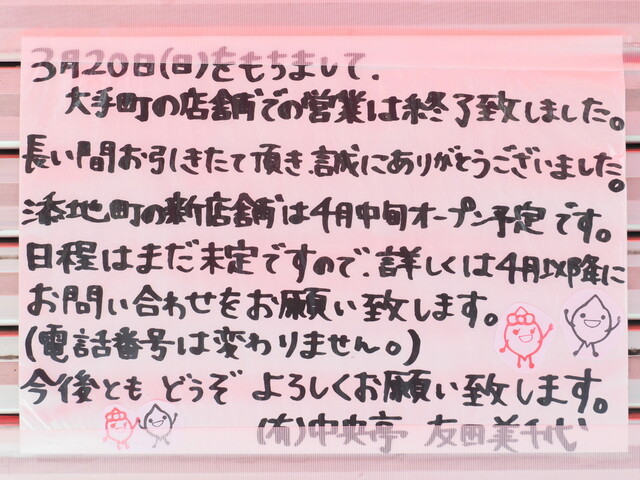 3月20日(日)をもちまして、
大手町の店舗での営業は終了致しました。
長い間お引きたて頂き、誠にありがとうございました。
添地町の新店舗は4月中旬オープン予定です。
日程はまだ未定ですので、詳しくは4月以降に
お問い合わせをお願い致します。
(電話番号は変わりません。)
今後とも どうぞ よろしくお願い致します。
(有)中央亭 友田美千代